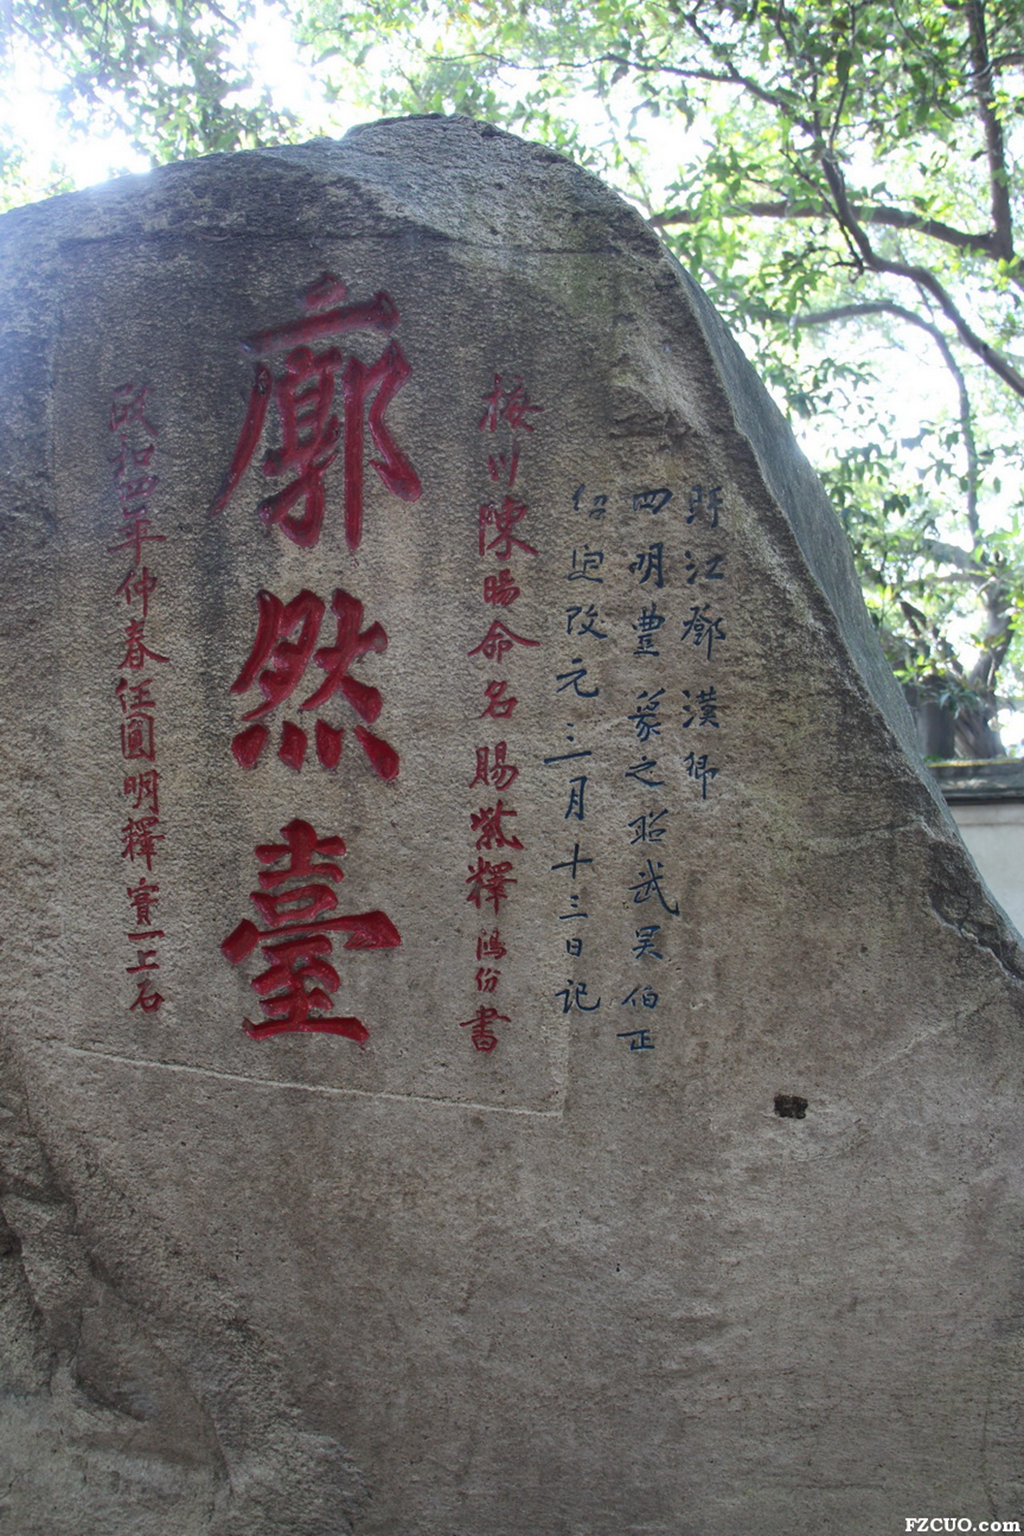 盱江鄧漢卿
四明豐之昭武吴伯正
绍定改元三月十三日记
梅川陳暘命名賜紫釋鴻份書
廓然臺
政和四年仲春住圓明釋一上石
FZCUO.com